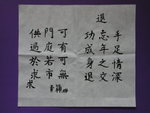 退
手足情深
忘年之交
功成身退
可有可無
門庭若市
供過於求